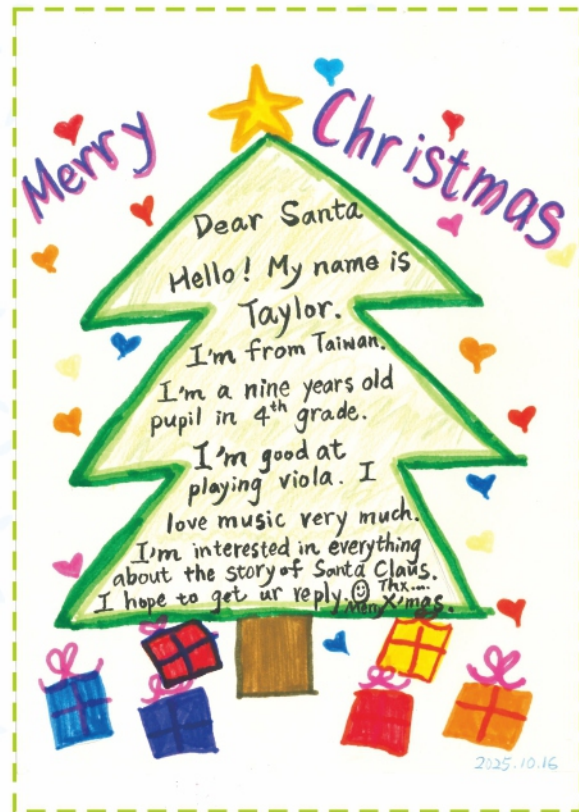 Merry Christmas
Dear Santa
Hello! My name is
Taylor.
I'm from Taiwan.
I'm a nine years old
pupil in 4th grade.
I'm good at
playing viola. I
love music very much.
I'm interested in everything
about the story of Santa Claus.
I hope to get ur reply.☺ Thx....
Merry X'mas.
2025.10.16